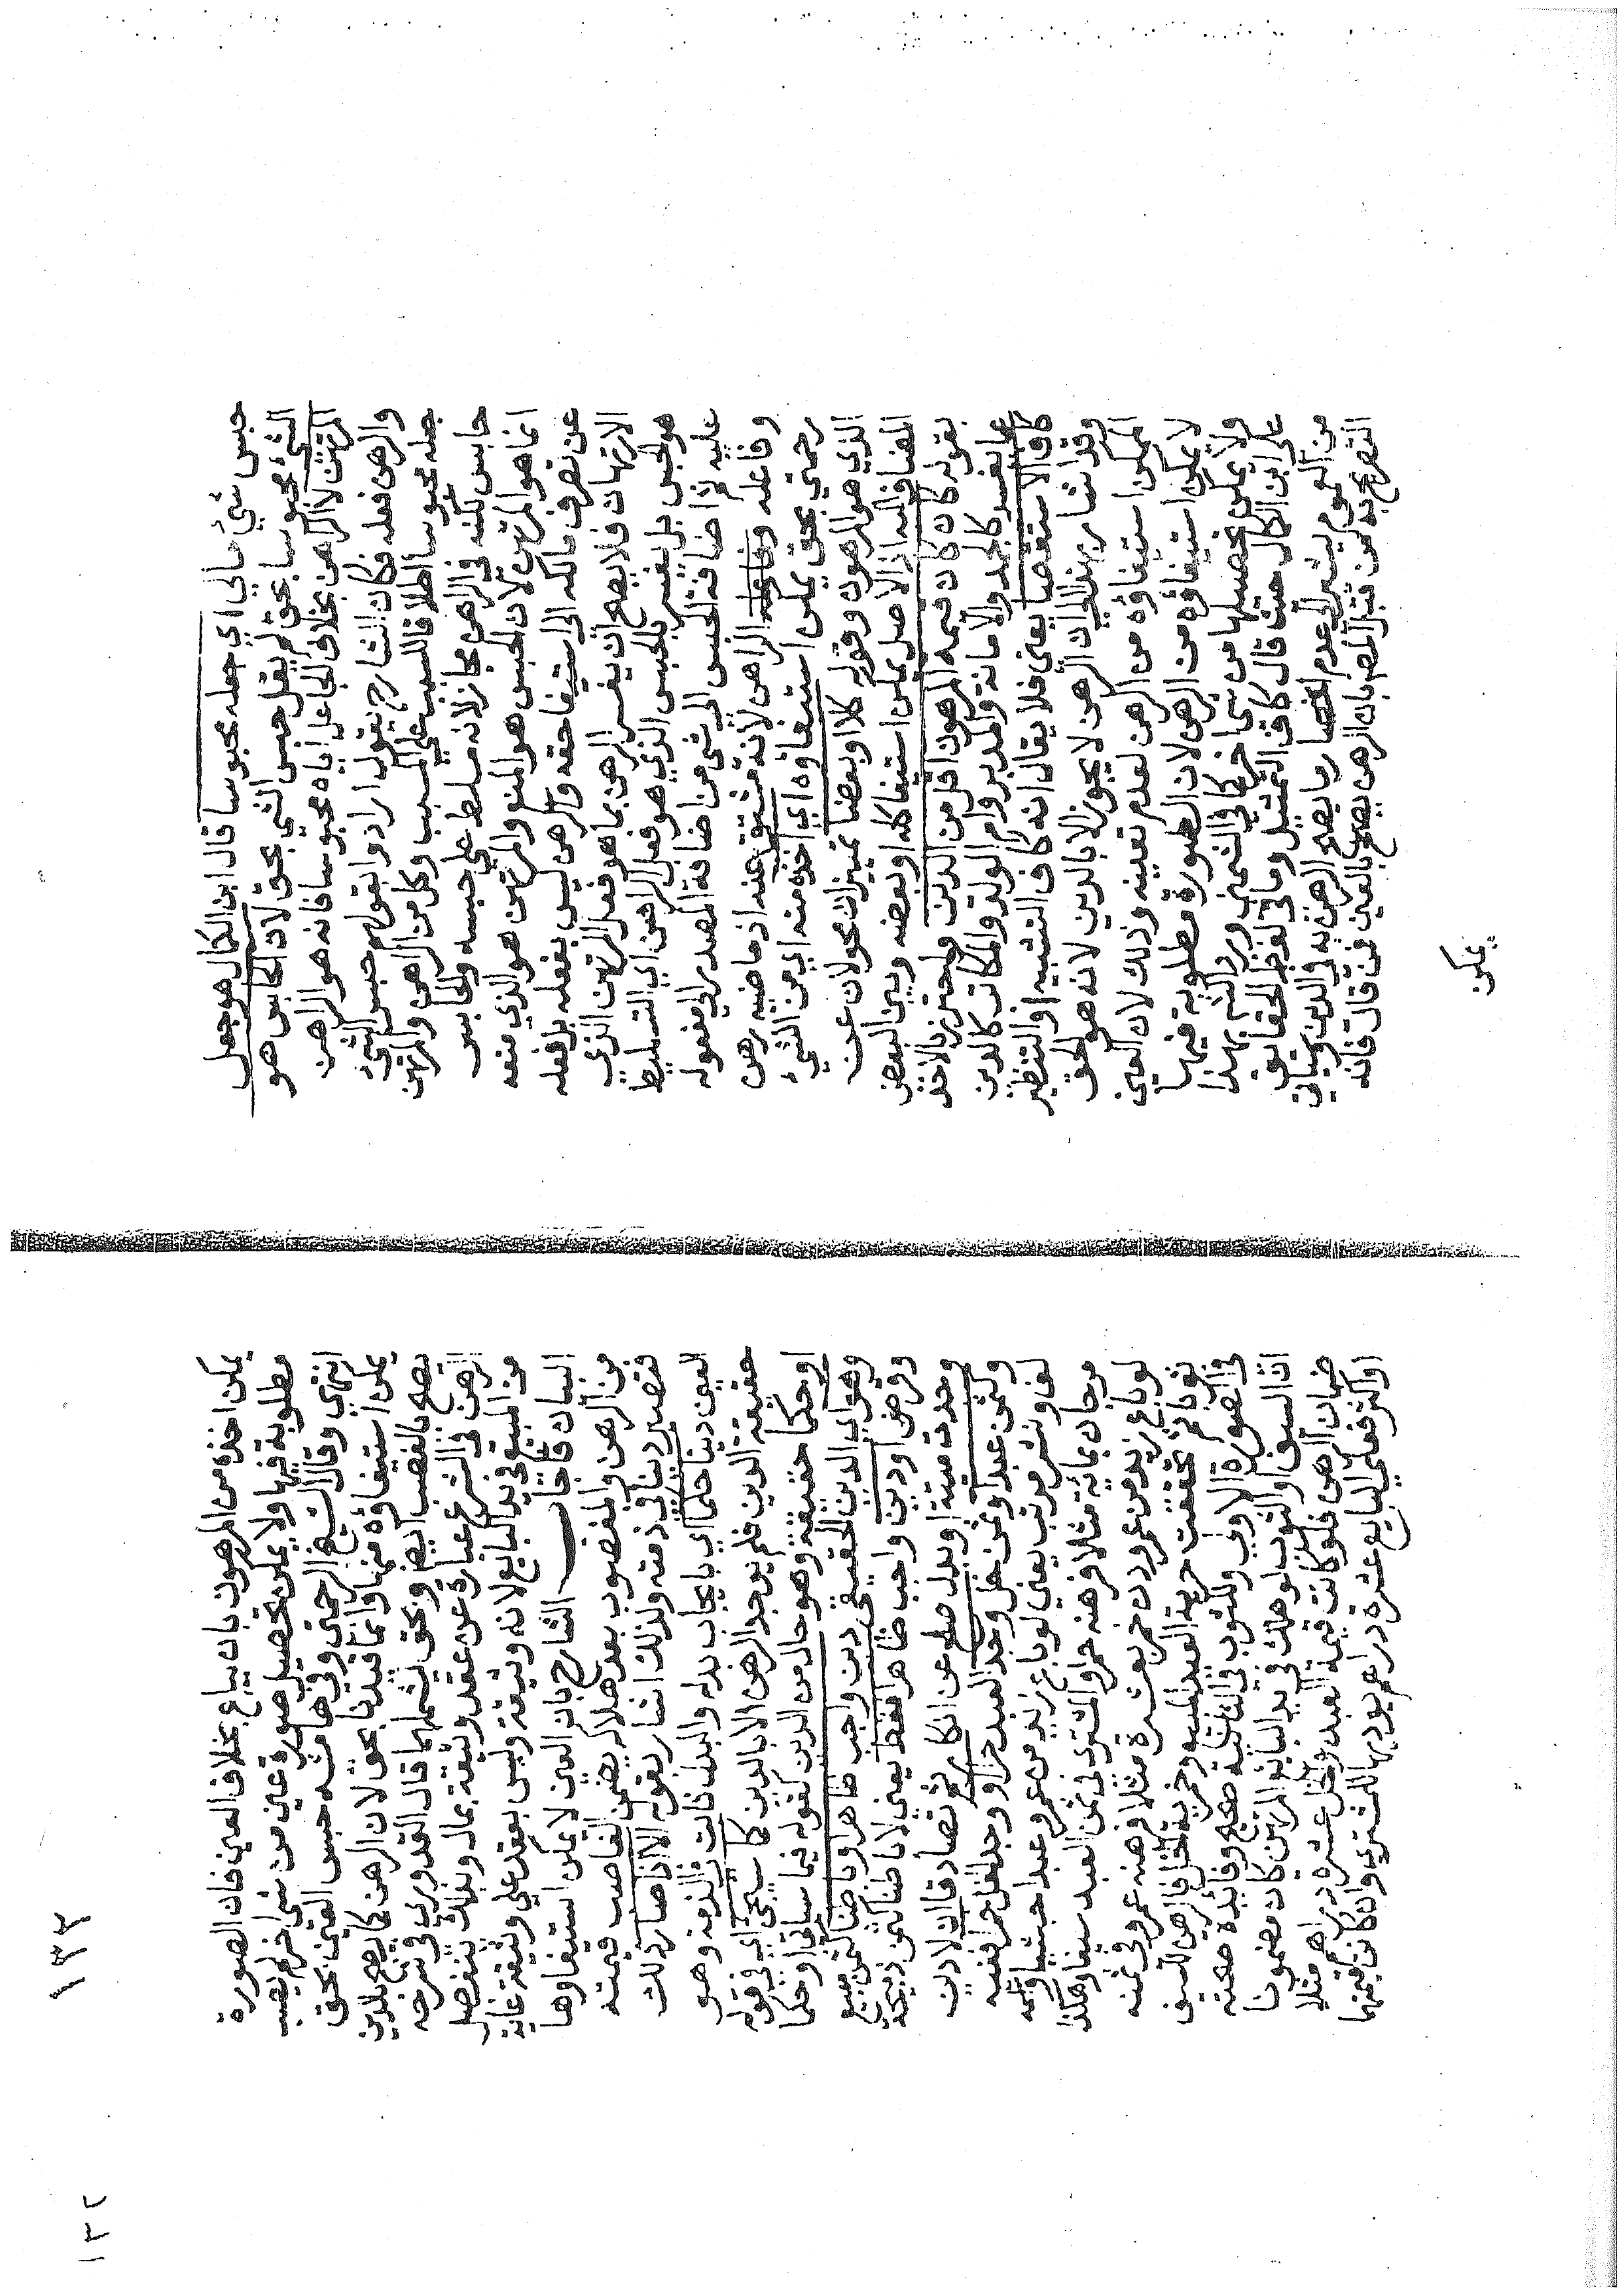 حبس شيء مالي اي جعله محبوسا قال ابن الكمال هو جعل
الشيء محبوسا بحق لم يقل حبس الشيء بحق لان الحابس هو
المرتهن لا الراهن بخلاف الجاعل اياه محبوسا فانه هو الراهن
والرهن فعله فكان الشارح يقول ارادوا بقولهم حبس الشيء
جعله محبوسا اطلاقا للسبب على المسبب وكل من الراهن والمرتهن
حابس لكنه في الراهن مجاز لانه مسلط علي حبسه والحابس
انما هو المرتهن لان الحبس هو المنع والمرتهن هو الذي منعه
عن تصرف مالكه الى استيفا حقه والرهن ليس بفعله بل فعله
الارتهان فلا يصح ان يفسر الرهن بما هو فعل المرتهن الذي
هو الحبس بل يفسر بالحبس الذي هو فعل الراهن اي التسليط
عليه ثم اضافة الحبس الى شيء من اضافة المصدر الي مفعوله
وفاعله الراهن لانه مشتق عنه اذ ماضيه رهن
رحمتي بحق يمكن استيفاؤه اي اخذه منه اي من الشيء
الذي هو المرهون وقوله كلا او بعضا تمييزان محولان عن
المضاف اليه اذ الاصل يمكن استيفا كله او بعضه وبين البعض
بقوله كان كان قيمة المرهون اقل من الدين واحترز بالاخذ
عما يفسد كالجمد والامانة والمدبر وام الولد والمكاتب كالدين
كاف الاستقصا يعني فلا يقال انه كاف التشبيه او التنظير
وقد اشار بهذا الي ان الرهن لا يجوز الا بالدين لانه هو الحق
الممكن استيفاؤه من الرهن لعدم تعيينه وذلك لان العين
لا يمكن استيفاؤه من الرهن لان الصورة مطلوبة فيها
ولا يمكن تحصيلها من شيء اخر كما في الشمني ورد الشرح بهذا
على ابن الكمال حيث قال كاف التمثيل وما في لفظ الحقايق
من العموم يشير الى عدم انحصار ما يصح الرهن به في الدين وسياتي
التصريح به من قبل المص بان الرهن يصح بالعين فمن قال فانه
يمكن
يمكن اخذه من المرهون بان يباع بخلاف العين فان الصورة
مطلوبة فيها ولا يمكن تحصيل صورة عين من شيء اخر لم يصب
انتهي وقال الشيخ الرحمتي وفي هامشه حبس العين بحق
يمكن استيفاؤه منها وانما قيدنا بحق لان الرهن كما يصح بالدين
يصح بالغصب ايضا وبحق يشملهما قال القدوري في شرحه
الرهن في الشرع عبارة عن عقد وثيقة بمال وبذلك ينفصل
من المبيع في يد البايع لانه وثيقة وليس بعقد علي وثيقة غاية
البيان فاجاب الشارح بان العين لا يمكن استيفاوها
من الرهن والمغصوب بعد هلاكه يضمن الغاصب قيمته
فتصير دينا في ذمته ولذلك اشار بقوله الا اذا صار ذلك
العين دينا حكما اي بايجاب بدله والبدل ثابت في الذمة وهو
حقيقة الدين فلم يوجد الرهن الا بالدين كما سيجئ اي في قوله
او حكما حقيقة وهو حال من الدين كقوله فيما سياتي او حكما
وهو اي الدين الحقيقي دين واجب ظاهرا وباطنا كثمن مبيع
وقرض او دين واجب ظاهرا فقط يعني لا باطنا كثمن ذبيحة
وجدت ميتة او بدل صلح عن انكار ثم تصادقا ان لا دين
وكثمن عبد او ثمن خل وجد العبد حرا او وجد الخل خمرا ففيه
لف ونشر مرتب يعني لو باع زيد من عمرو عبدا حبشيا وقيمه
مرجان بمائة مثلا فرهنه عمرو المشتري في ثمن العبد سيفا وهكذا
لو باع زيد من عمرو دن خمر بعشرة مثلا فرهنه عمرو في ثمنه
ثوبا ثم تحققت حرية العبد المبيع وخمرية الخل فالرهن للسيف
في الصورة الاولي وللثوب في الثانية صحيح وفايدة صحته
ان السيف او الثوب لو هلك في يد البايع المرتهن كان مضمونا
ضمان الرهن فلو كانت قيمة العبد والخل عشرة دراهم مثلا
او اكثر فعلي البايع عشرة دراهم يوديها للمشتري وان كانت قيمتها
١٣٣
١٣٢